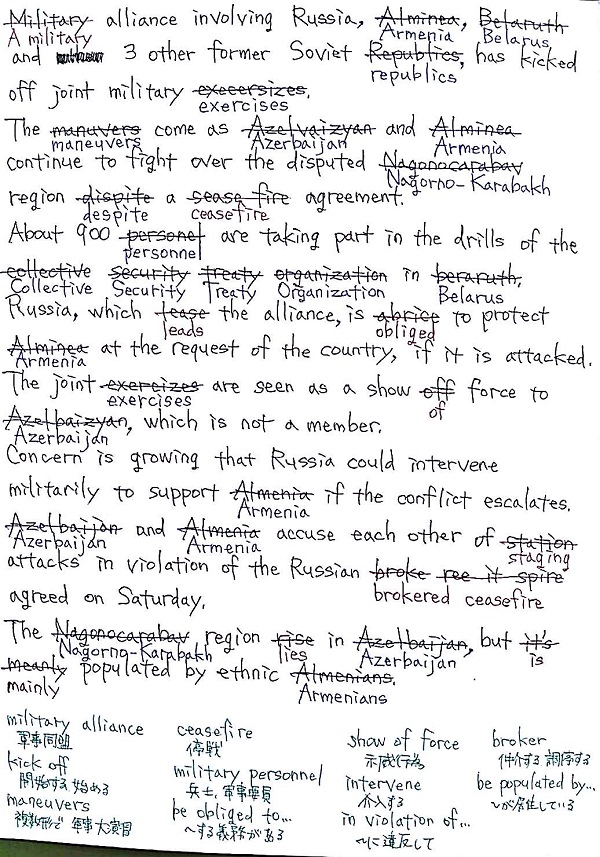 Military alliance involving Russia, Alminea, Betaruth
A military Armenia Belarus
and 3 other former Soviet Republics, has kicked
republics
off joint military execersizes.
exercises
The manuvers come as Azelvaizyan and Alminea
maneuvers Azerbaijan Armenia
continue to fight over the disputed Nagonocarabav
Nagorno-Karabakh
region dispite a sease fire agreement.
despite ceasefire
About 900 personel are taking part in the drills of the
personnel
collective security treaty organization in beraruth.
Collective Security Treaty Organization Belarus
Russia, which lease the alliance, is abrice to protect
leads obliged
Alminea at the request of the country, if it is attacked.
Armenia
The joint exercizes are seen as a show off force to
exercises of
Azelbaizyan, which is not a member.
Azerbaijan
Concern is growing that Russia could intervene
militarily to support Almenia if the conflict escalates.
Armenia
Azelbaijan and Almenia accuse each other of station
Azerbaijan Armenia staging
attacks in violation of the Russian broke ree it spire
brokered ceasefire
agreed on Saturday.
The Nagonocarabav region rise in Azelbaijan, but it's
Nagorno-Karabakh lies Azerbaijan is
meanly populated by ethnic Almenians.
mainly Armenians
military alliance ceasefire show of force broker
軍事同盟 停戦 示威行為 仲介する 調停する
kick off military personnel intervene be populated by...
開始する 始める 兵士, 軍事要員 介入する ～が居住している
maneuvers be obliged to... in violation of...
複数形で 軍事大演習 ～する義務がある ～に違反して